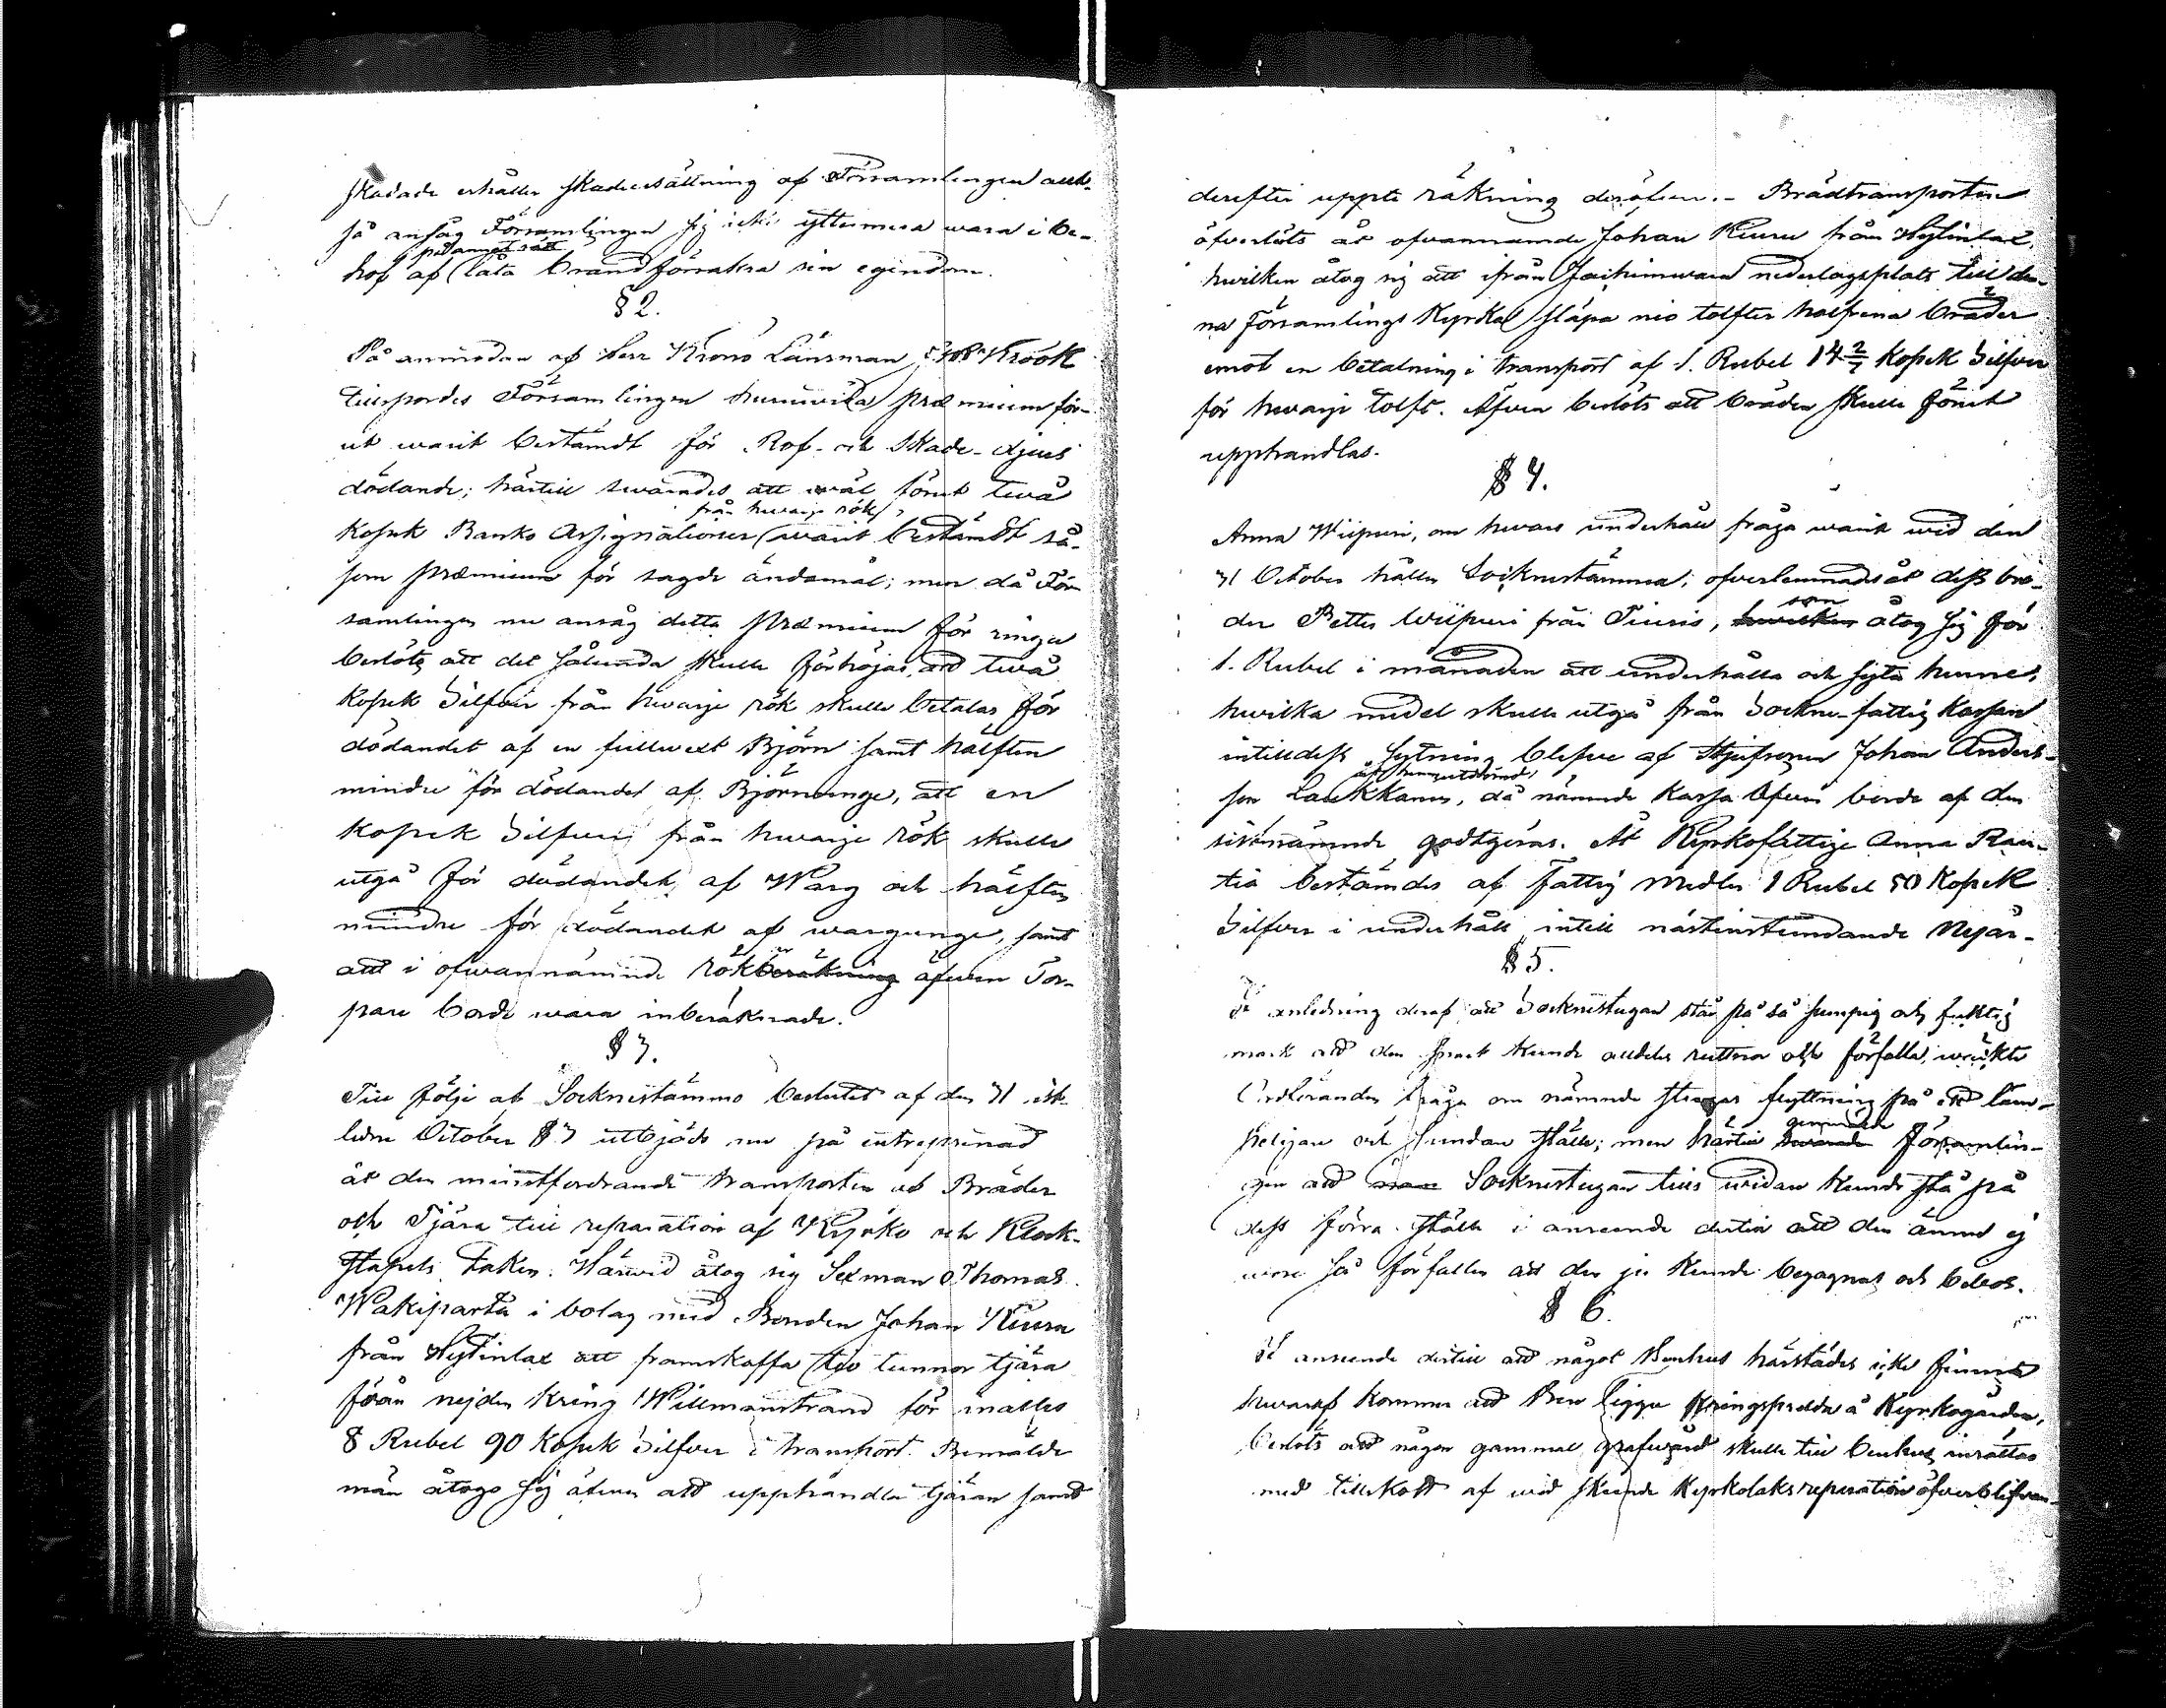 skadade erhåller skadeersättning af Församlingen
så ansåg Församlingen sig icke yttermera wara i be-
på annat sätt
hof af låta brandförsäkra sin egendom.
§ 2.
På anmodan af Herr Krono Länsman Krook
tillspordes Församlingen huruwida præmium för-
ut warit bestämdt för Rof- och Skade-djurs
dödande; härtill swarades att wäl förut twå
från hwarje rök
Kopek Banko Assignationer warit bestämdt så-
som præmium för sagde ändamål; men då För-
samlingen nu ansåg detta præmium för ringa
beslöts att det sålunda skulle förhöjas, att twå
Kopek Silfver från hwarje rök skulle betalas för
dödandet af en fullwext Björn samt hälften
mindre för dödandet af Björnunge, att en
Kopek Silfver från hwarje rök skulle
utgå för dödandet af Warg och hälften
mindre för dödandet af wargunge, samt
att i ofwannämnde rök beräkning äfwen Tor-
pare borde wara inberäknade.
§ 3.
Till följe af Socknestämmo beslutet af den 31 sist-
lidne October § 3 utbjöds nu på entreprenad
åt den minstfordrande transporten af Bräder
och Tjära till reparation af Kyrko och Klock-
stapels taken. Härwid åtog sig Sexman Thomas
Wakiparta i bolag med Bonden Johan Kiuru
från Hytinlax att framskaffa tio tunnor tjära
från nejden kring Willmanstrand för inalles
8 Rubel 90 Kopek Silfver i transport. Bemälde
män åtogo sig äfwen att upphandla tjäran samt
derefter uppte räkning deröfwer. - Brädtransporten
öfverläts åt ofvannämnde Johan Kiuru från Hytinlax,
hwilken åtog sig att ifrån Joachimwara nederlagsplats till den-
na Församlings Kyrka släpa nio tolfter halfrena bräder
emot en betalning i transport af 1. Rubel 14 2/7 Kopek Silfver
för hwarje tolft. Äfven beslöts att bräden skulle förut
upphandlas.
§ 4.
Anna Wiipuri, om hwars underhåll fråga warit wid den
31 October hållen Socknestämma, öfverlemnades åt dess bro-
der Petter Wiipuri från Tiuris, hwilken åtog sig för
som
1. Rubel i månaden att underhålla och sytta henne,
hwilka medel skulle utgå från Sockne-fattig Kassan
intilldess sytning blefve af Styfsonen Johan Anders-
son Laukkanen, då nämnde Kassa äfven borde af den
sistnämnde godtgöras. Åt Kyrkofattige Anna Rau-
tia bestämdes af Fattig medlen 1 Rubel 50 Kopek
Silfver i underhåll intill nästinstundande Nyår.
§ 5.
I anledning deraf att Socknestugan står på så sumpig och fuktig
mark att den snart kunde alldeles ruttna och förfalla, wäckte
Ordföranden fråga om nämnde stugas flyttning på ett läm-
peligare och sundare ställe; men härtill swarade Församlin-
genmälde
gen att Socknestugan tills widare kunde stå på
dess förra ställe i anseende dertill att den ännu ej
wore så förfallen att den ju kunde begagnas och bebos.
§ 6.
I anseende dertill att något Benhus härstädes icke finnes
hwaraf kommer att Ben ligga kringspridda å Kyrkogården,
beslöts att någon gammal grafwård skulle till benhus inrättas
med tillskott af wid skeende Kyrkotaks reparation öfverblifvan-